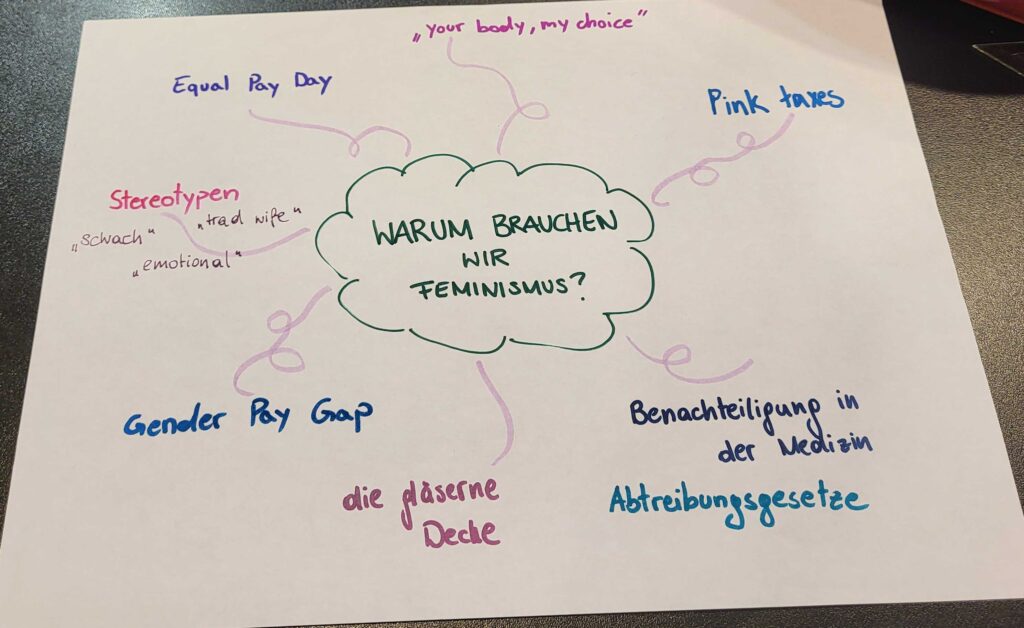 „your body, my choice"
Equal Pay Day
Pink taxes
Stereotypen
„trad wife"
„schwach"
„emotional"
WARUM BRAUCHEN
WIR
FEMINISMUS?
Gender Pay Gap
Benachteiligung in
der Medizin
die gläserne
Decke
Abtreibungsgesetze